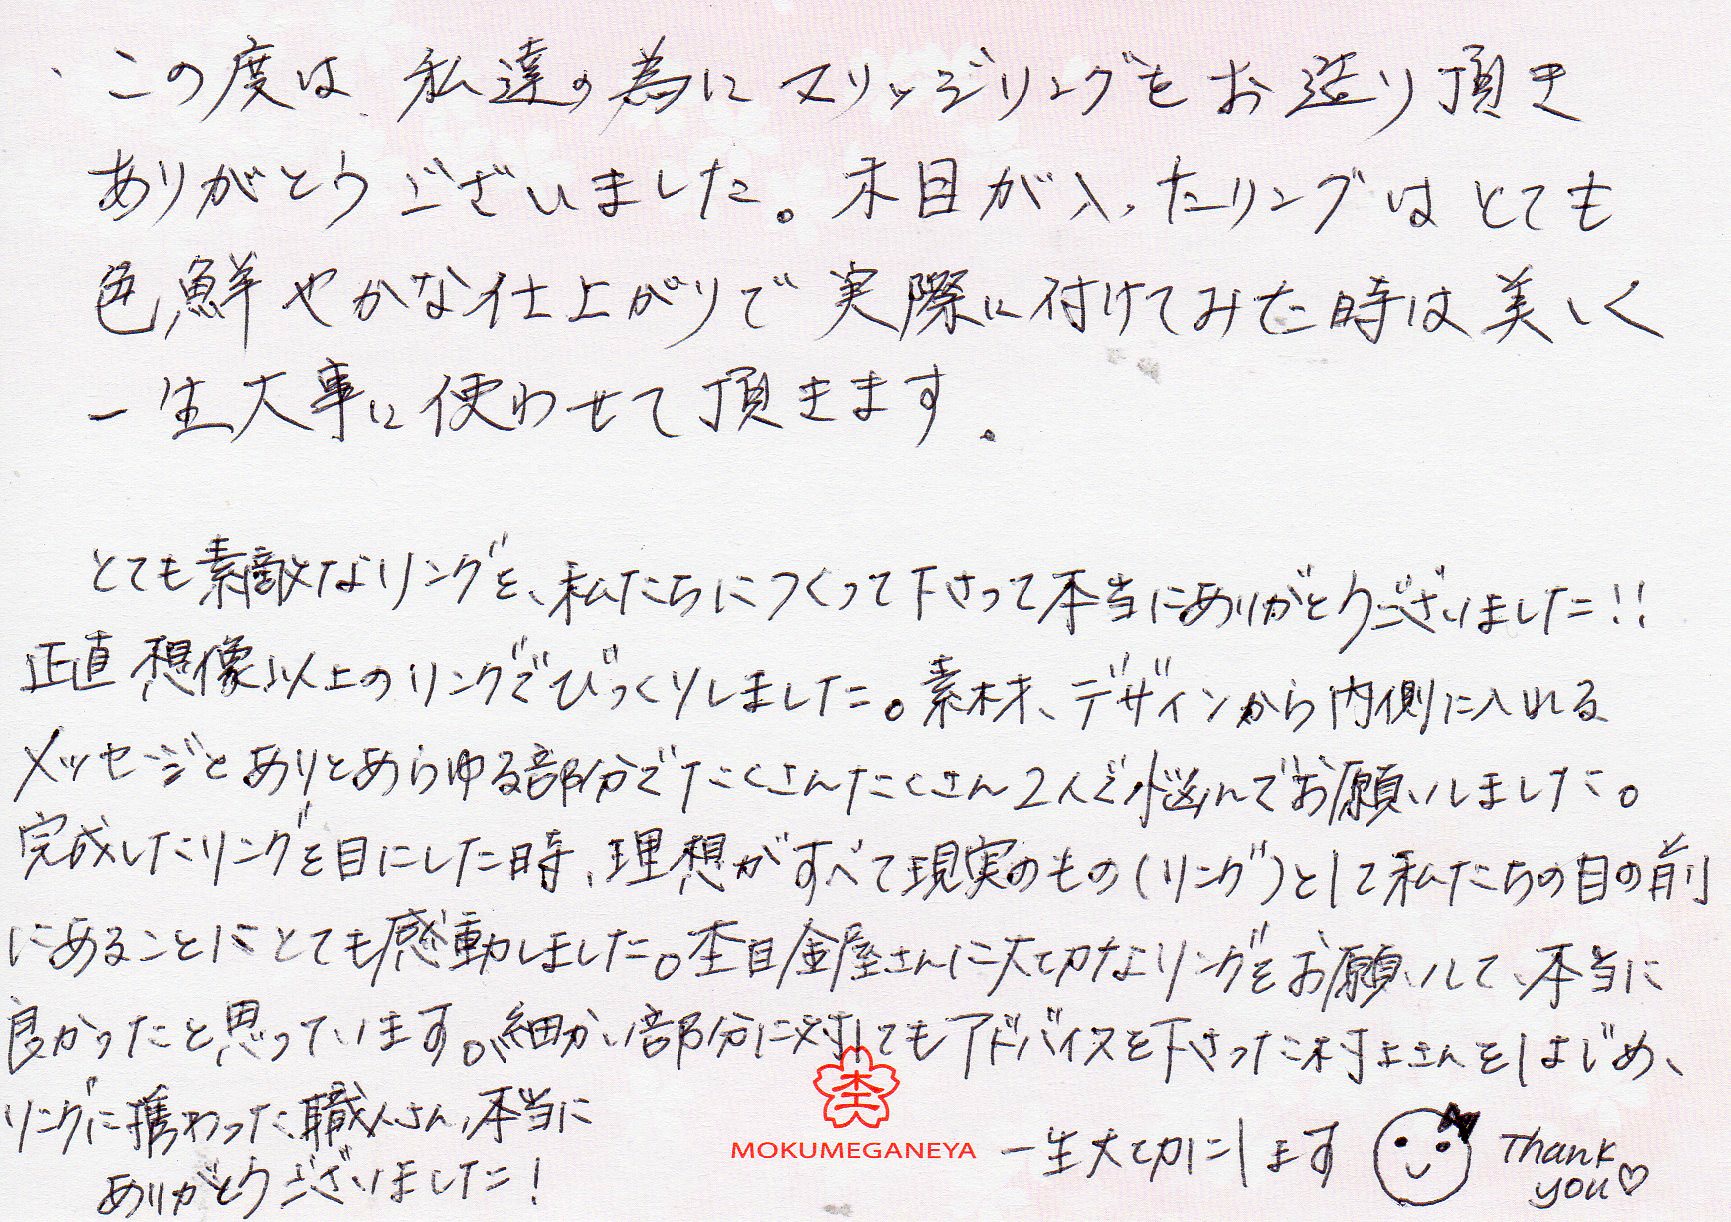 この度は、私達の為にマリッジリングをお造り頂き
ありがとうございました。木目が入ったリングはとても
色鮮やかな仕上がりで実際に付けてみた時は美しく
一生大事に使わせて頂きます。
とても素敵なリングを、私たちにつくって下さって本当にありがとうございました!!
正直想像以上のリングでびっくりしました。素材、デザインから内側に入れる
メッセージとありとあらゆる部分でたくさんたくさん2人で悩んでお願いしました。
完成したリングを目にした時、理想がすべて現実のもの(リング)として私たちの目の前
にあることにとても感動しました。杢目金屋さんに大切なリングをお願いして、本当に
良かったと思っています。細かい部分に対してもアドバイスを下さった村上さんをはじめ、
リングに携わった職人さん、本当に
ありがとうございました!
杢
MOKUMEGANEYA
一生大切にします
Thank
you♡